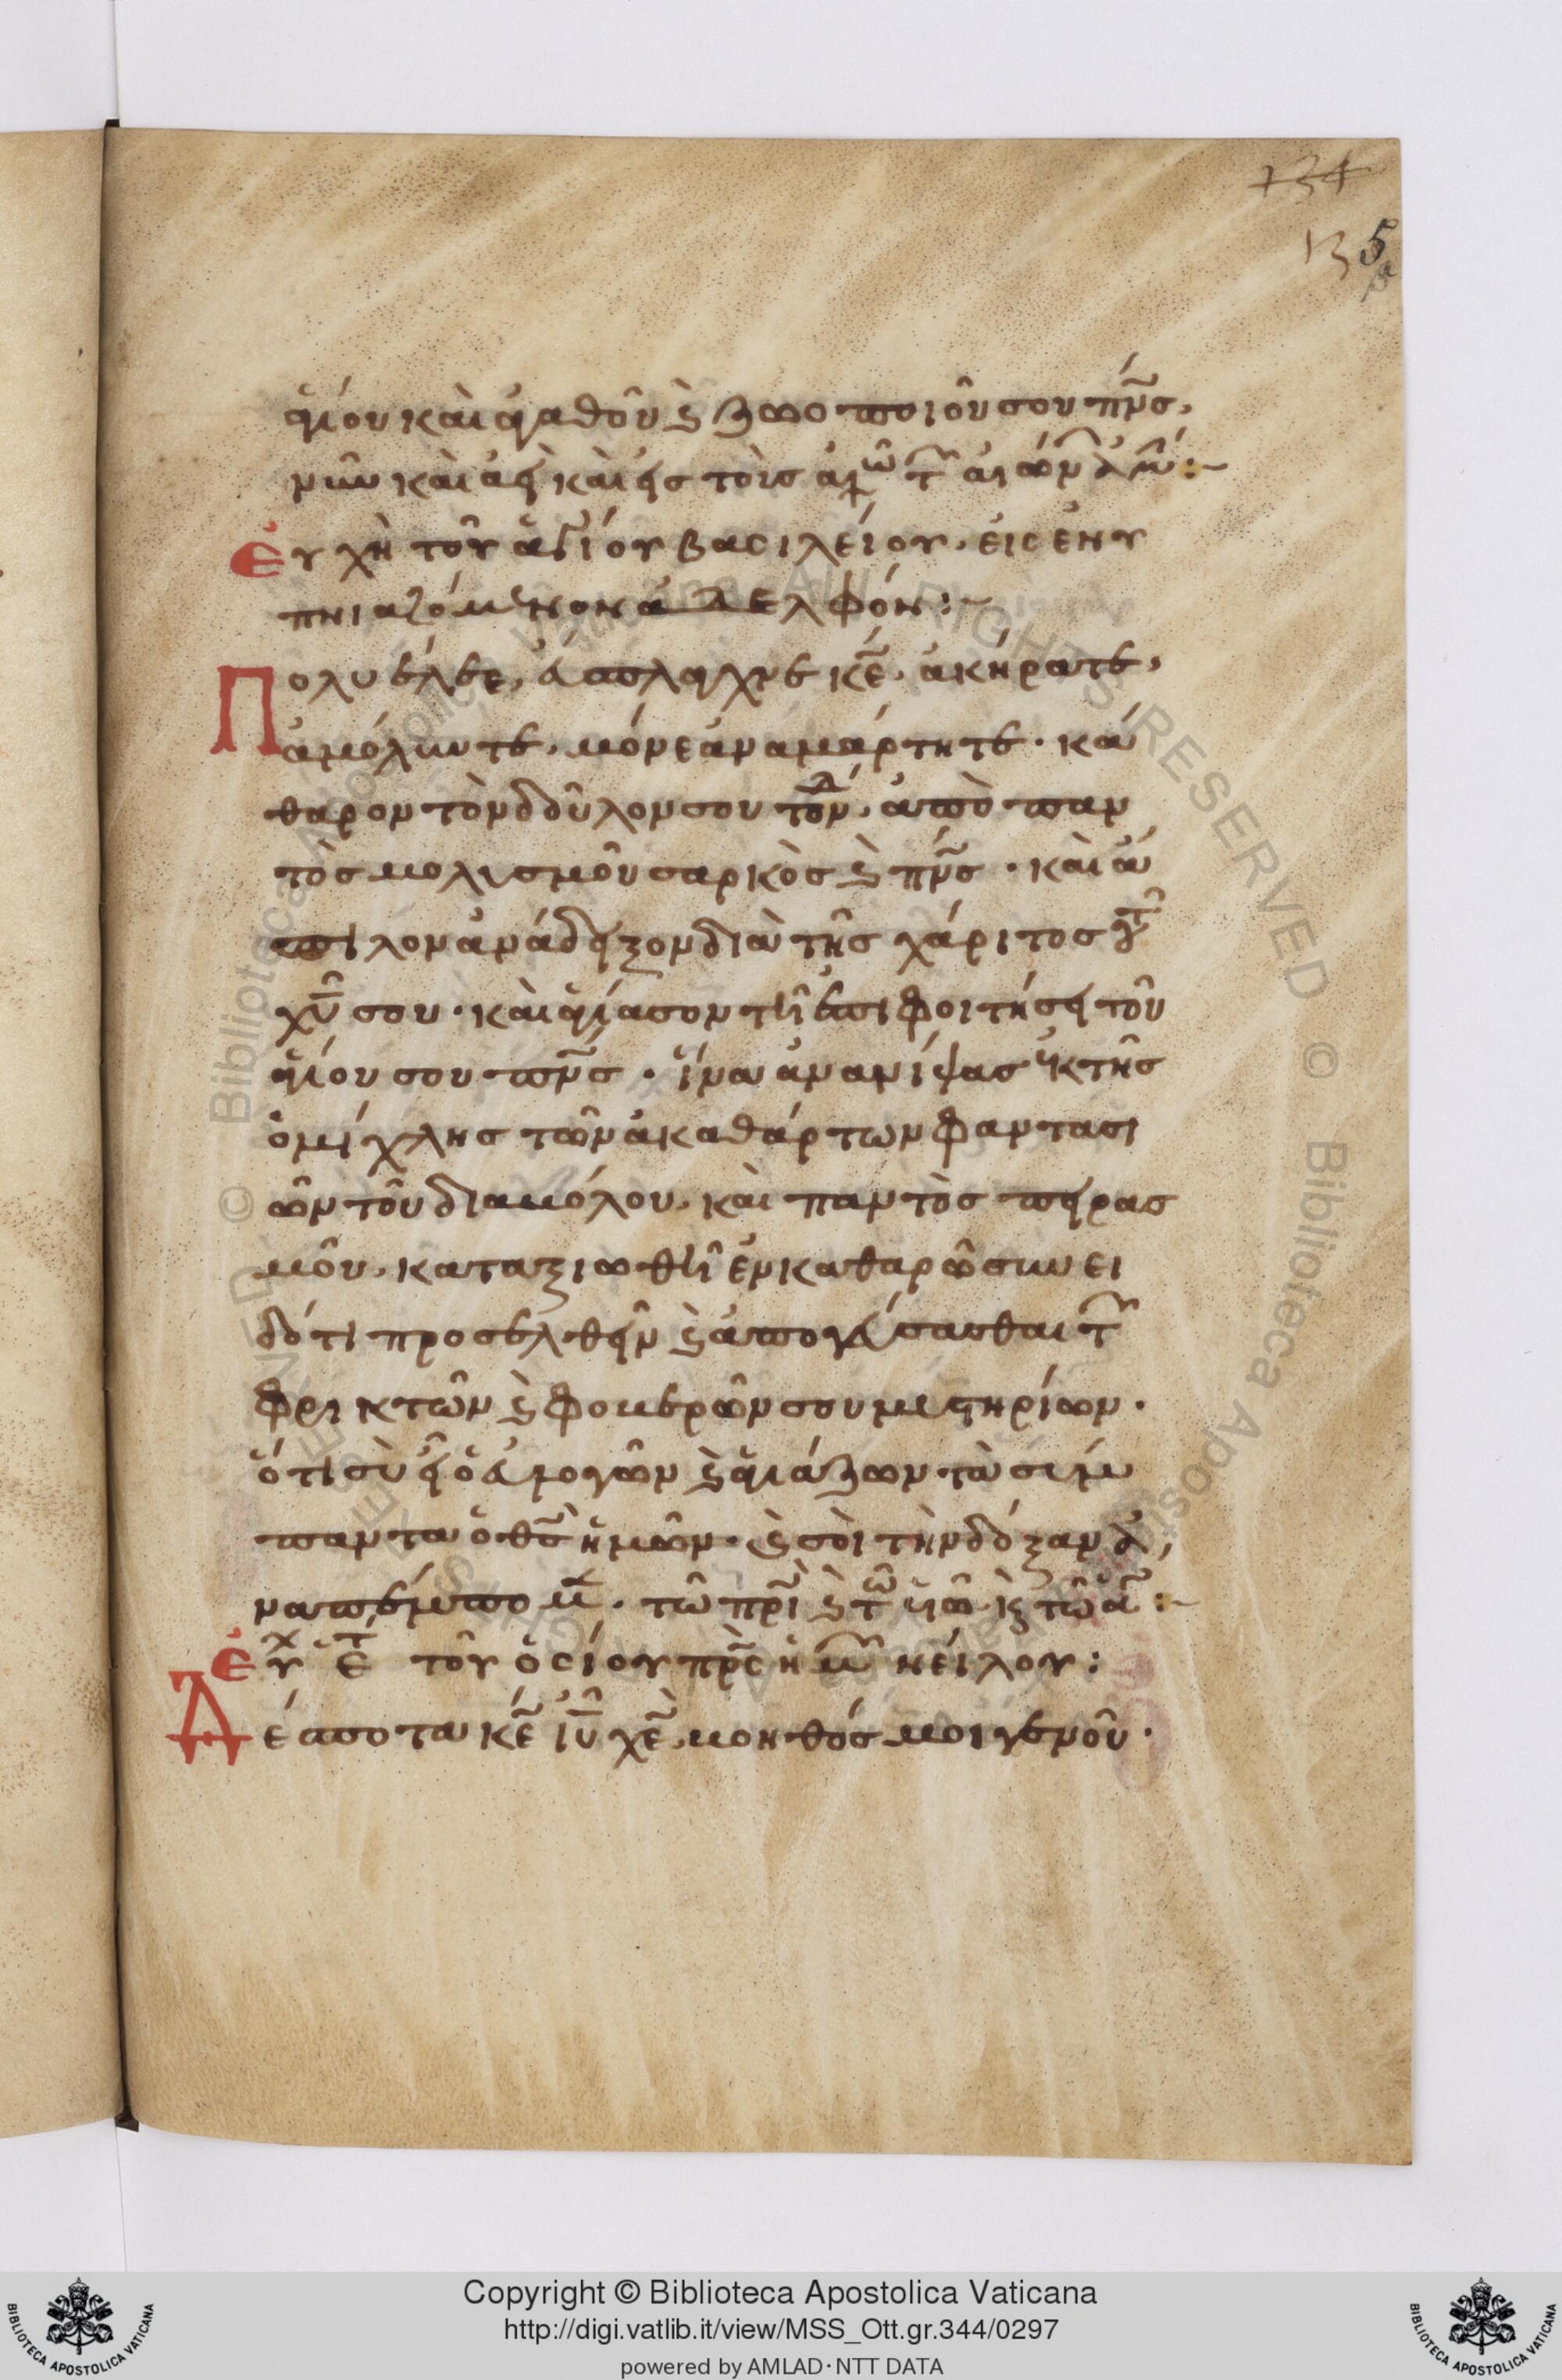 134
135
ἁγίου καὶ ἀγαθοῦ ϛ ζωοποιοῦ σου πν̅ς,
νῦν καὶ ἀεὶ καὶ εἰς τοὺς αἰῶ τ αἰών ἀμ:~
Εὐχὴ τοῦ ἁγίου βασιλείου. εἰς ἐνυ
πνιαζόμενον ἀδελφόν:~
Πολυέλεε, εὔσπλαγχνε κε̅. ἀκήρατε,
ἀμόλυντε. μόνε ἀναμάρτητε. κά
θαρον τὸν δοῦλον σου τόνδ. ἀπὸ παν
τὸς μολυσμοῦ σαρκὸς ϛ πν̅ς. καὶ ἄ
σπιλον ἀνάδειξον διὰ τῆς χάριτος τ
χυ̅ σου. καὶ ἁγίασον τῇ ἐπιφοιτήσει τοῦ
ἁγίου σου πν̅ς. ἵνα ἀνανίψας ἐκ τῆς
ὁμίχλης τῶν ἀκαθάρτων φαντασι
ῶν τοῦ διαβόλου. καὶ παντὸς πειρας
μοῦ. καταξιωθῇ ἐν καθαρῶ συνει
δότι προσελθεῖν ϛ ἀπογεύσασθαι τ
φρικτῶν ϛ φοβερῶν σου μυστηρίων.
ὅτι σὺ εἶ ὁ εὐλογῶν ϛ ἁγιάζων τὰ σύμ
παντα ὁ θς̅ ἡμῶν. ϛ σοὶ τὴν δόξαν ἀ
ναπέμπομ. τῶ πρι̅ ϛ τῶ υἱῶ ϛ τῶ ἁ:~
Εὐχ ἑτ τοῦ ὁσίου πρς̅ ἡμ νείλου:
Δέσποτα κε̅ ιυ̅ χε̅, βοηθός μοι γενοῦ.
Copyright © Biblioteca Apostolica Vaticana
http://digi.vatlib.it/view/MSS_Ott.gr.344/0297
powered by AMLAD·NTT DATA
BIBLIOTECA APOSTOLICA VATICANA
BIBLIOTECA APOSTOLICA VATICANA